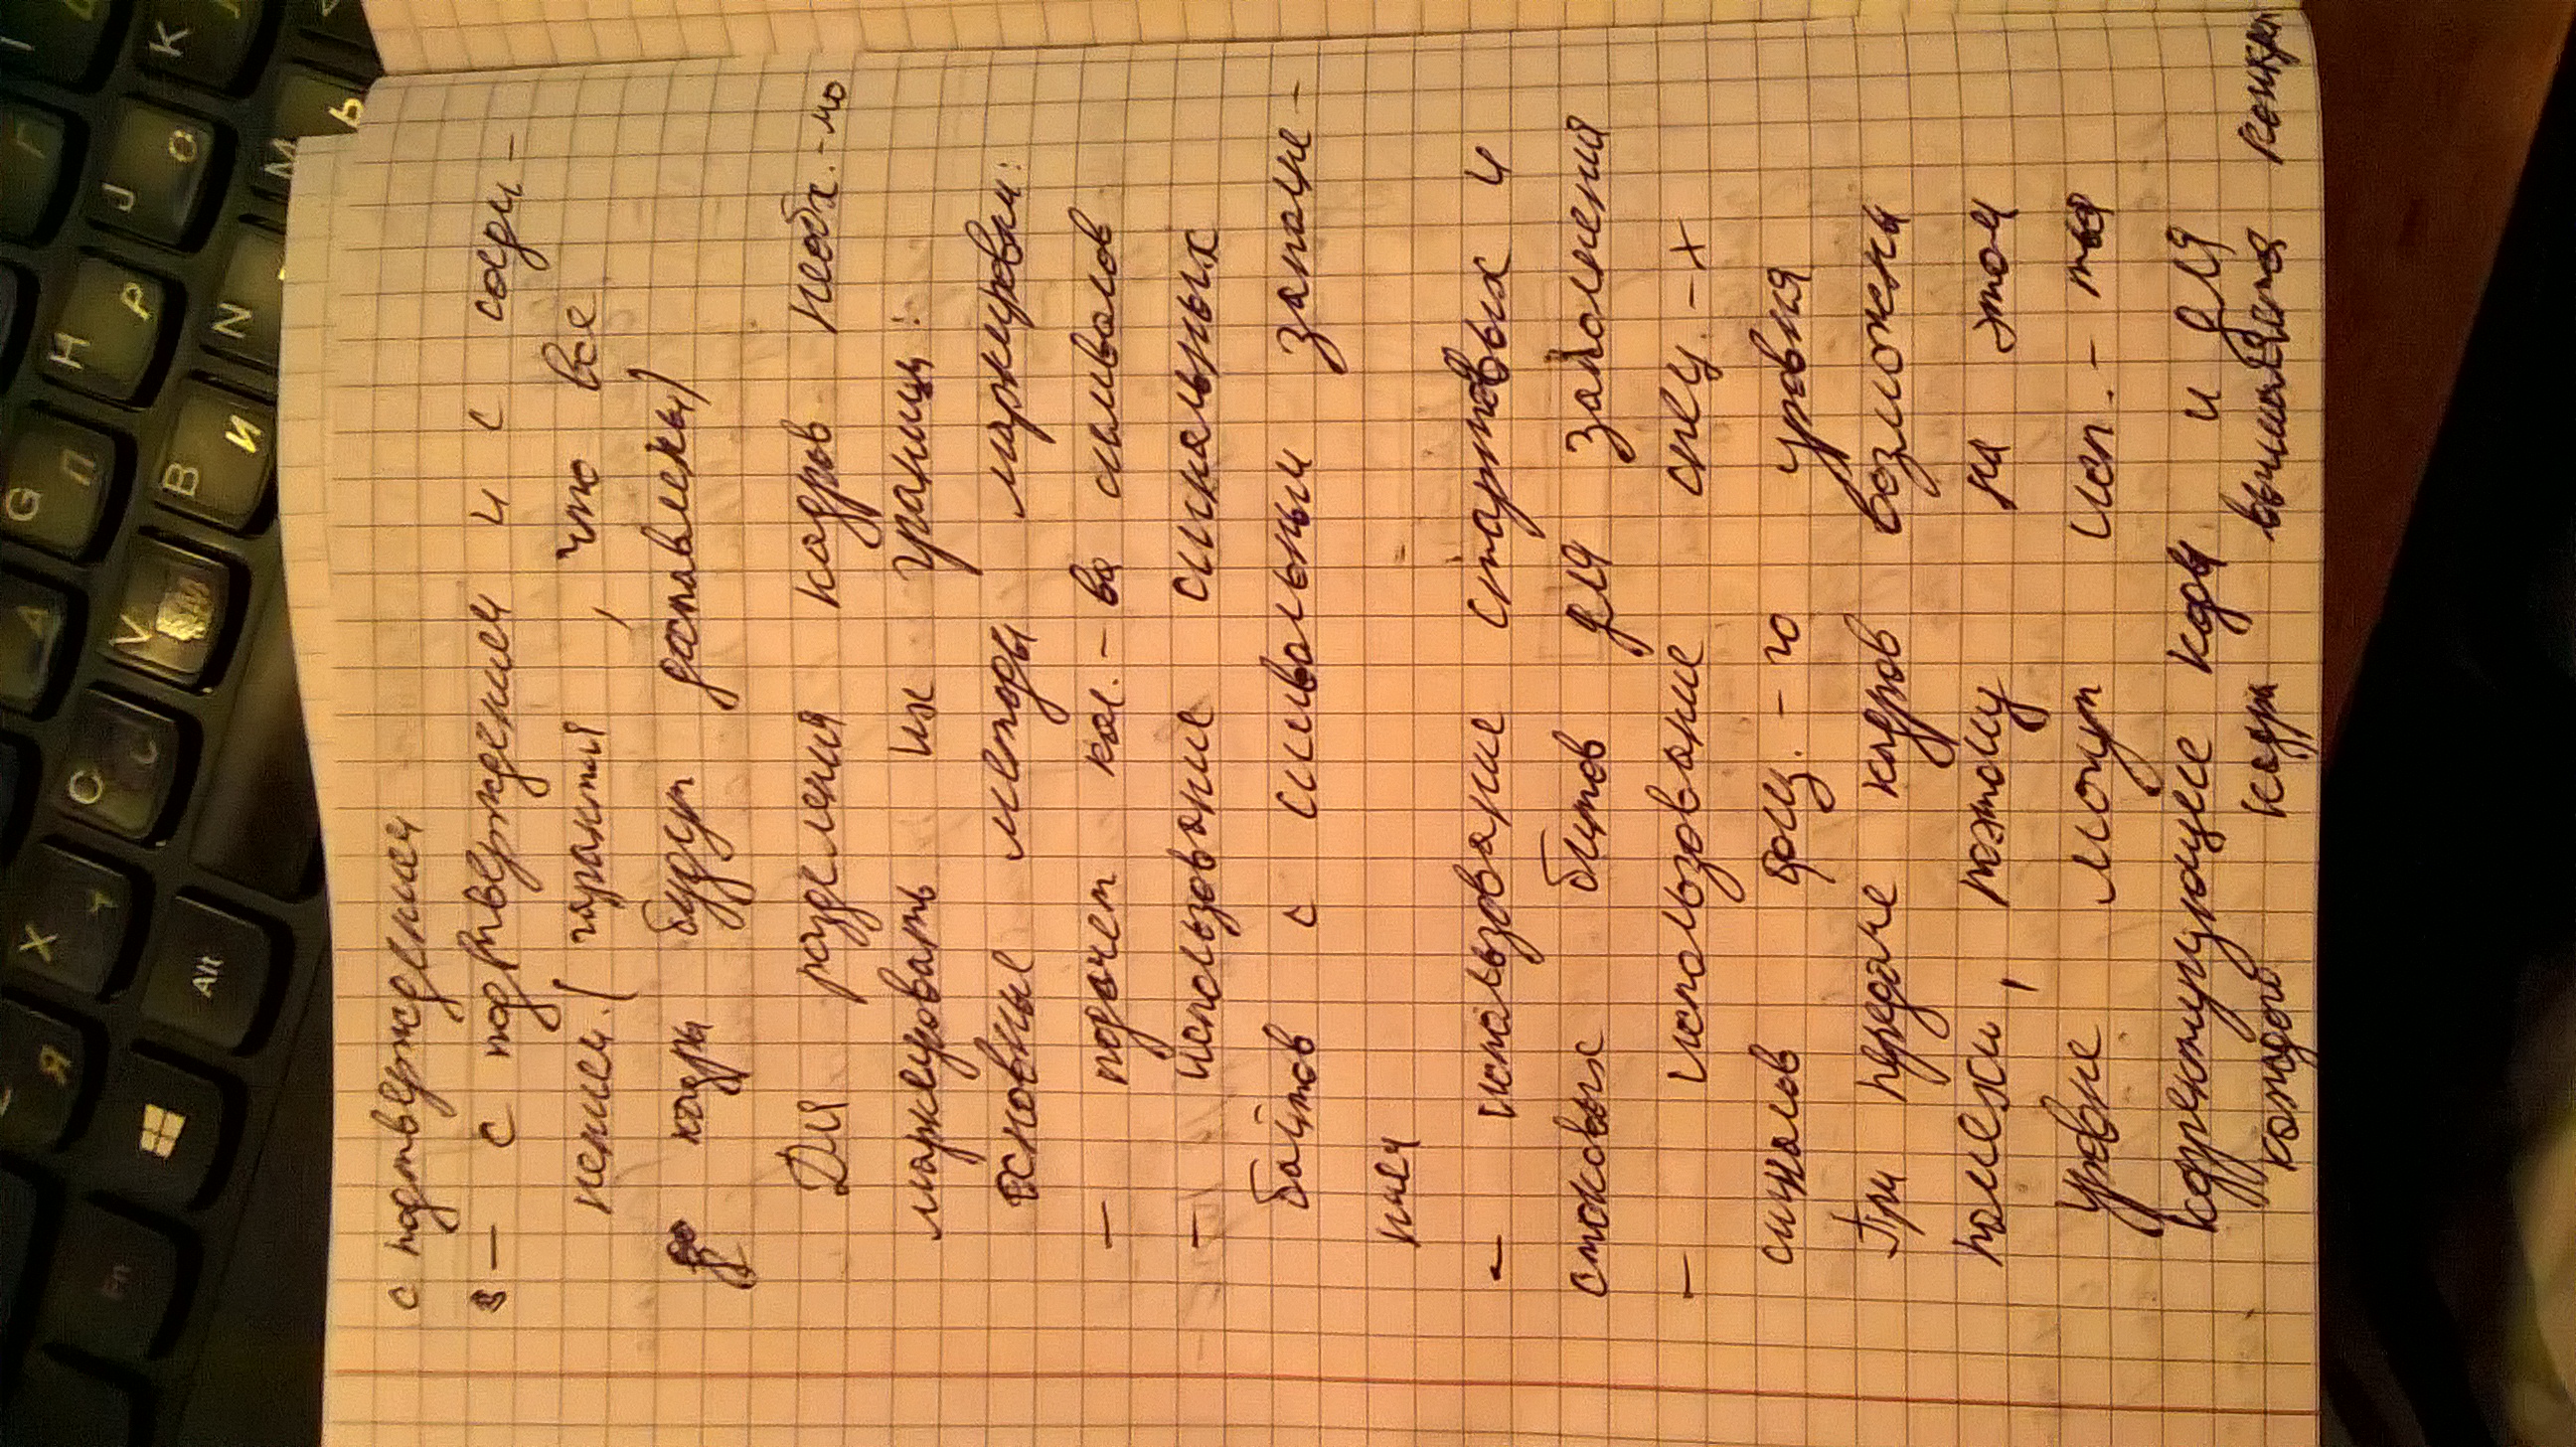 Z Я X Ч А G П Г
Fn Alt C С V B И H Р J О K N M Ь
с подтверждением
– с подтверждением и с соеди-
нением. ( гарантия , что все
кадры будут доставлены)
Для разделения кадров необх.-мо
маркировать их границы:
основные методы маркировки:
– подсчет кол.-во символов
– использование сигнальных
байтов с символьным заполне-
нием
– использование стартовых и
стоковых битов для заполнения
– использование спец.-х
сигналов физ.-го уровня
При передаче кадров возможны
помехи, поэтому на этом
уровне могут исп.-тся
корректирующие коды и для
каждого кадра вычисляется